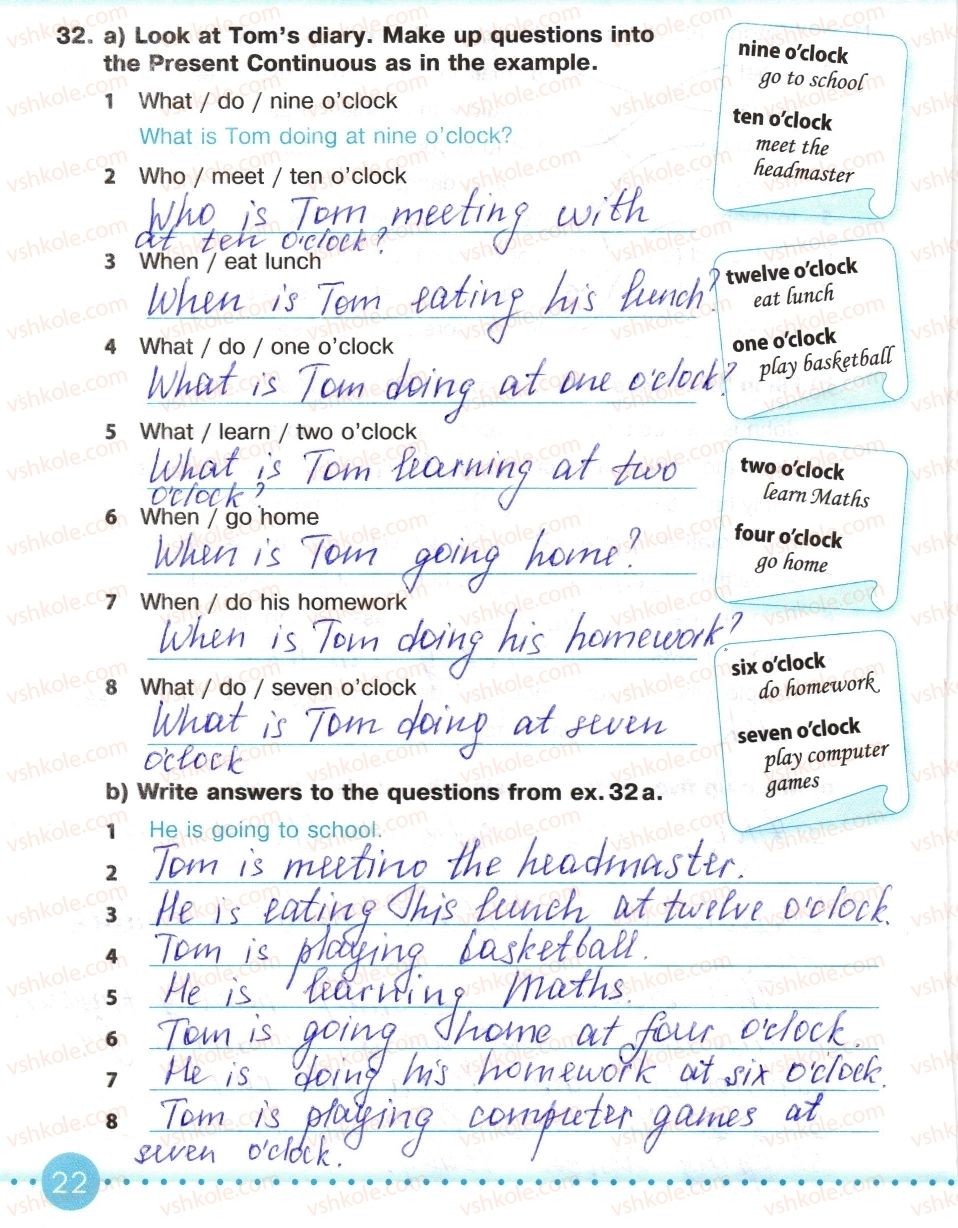 32. a) Look at Tom's diary. Make up questions into
the Present Continuous as in the example.
1 What / do / nine o'clock
What is Tom doing at nine o'clock?
2 Who / meet / ten o'clock
Who is Tom meeting with
at ten o'clock?
3 When / eat lunch
When is Tom eating his lunch?
4 What / do / one o'clock
What is Tom doing at one o'clock?
5 What / learn / two o'clock
What is Tom learning at two
o'clock?
6 When / go home
When is Tom going home?
7 When / do his homework
When is Tom doing his homework?
8 What / do / seven o'clock
What is Tom doing at seven
o'clock
nine o'clock
go to school
ten o'clock
meet the
headmaster
twelve o'clock
eat lunch
one o'clock
play basketball
two o'clock
learn Maths
four o'clock
go home
six o'clock
do homework
seven o'clock
play computer
games
b) Write answers to the questions from ex. 32 a.
1 He is going to school.
2 Tom is meeting the headmaster.
3 He is eating his lunch at twelve o'clock.
4 Tom is playing basketball.
5 He is learning Maths.
6 Tom is going home at four o'clock.
7 He is doing his homework at six o'clock.
8 Tom is playing computer games at
seven o'clock.
22
vshkole.com